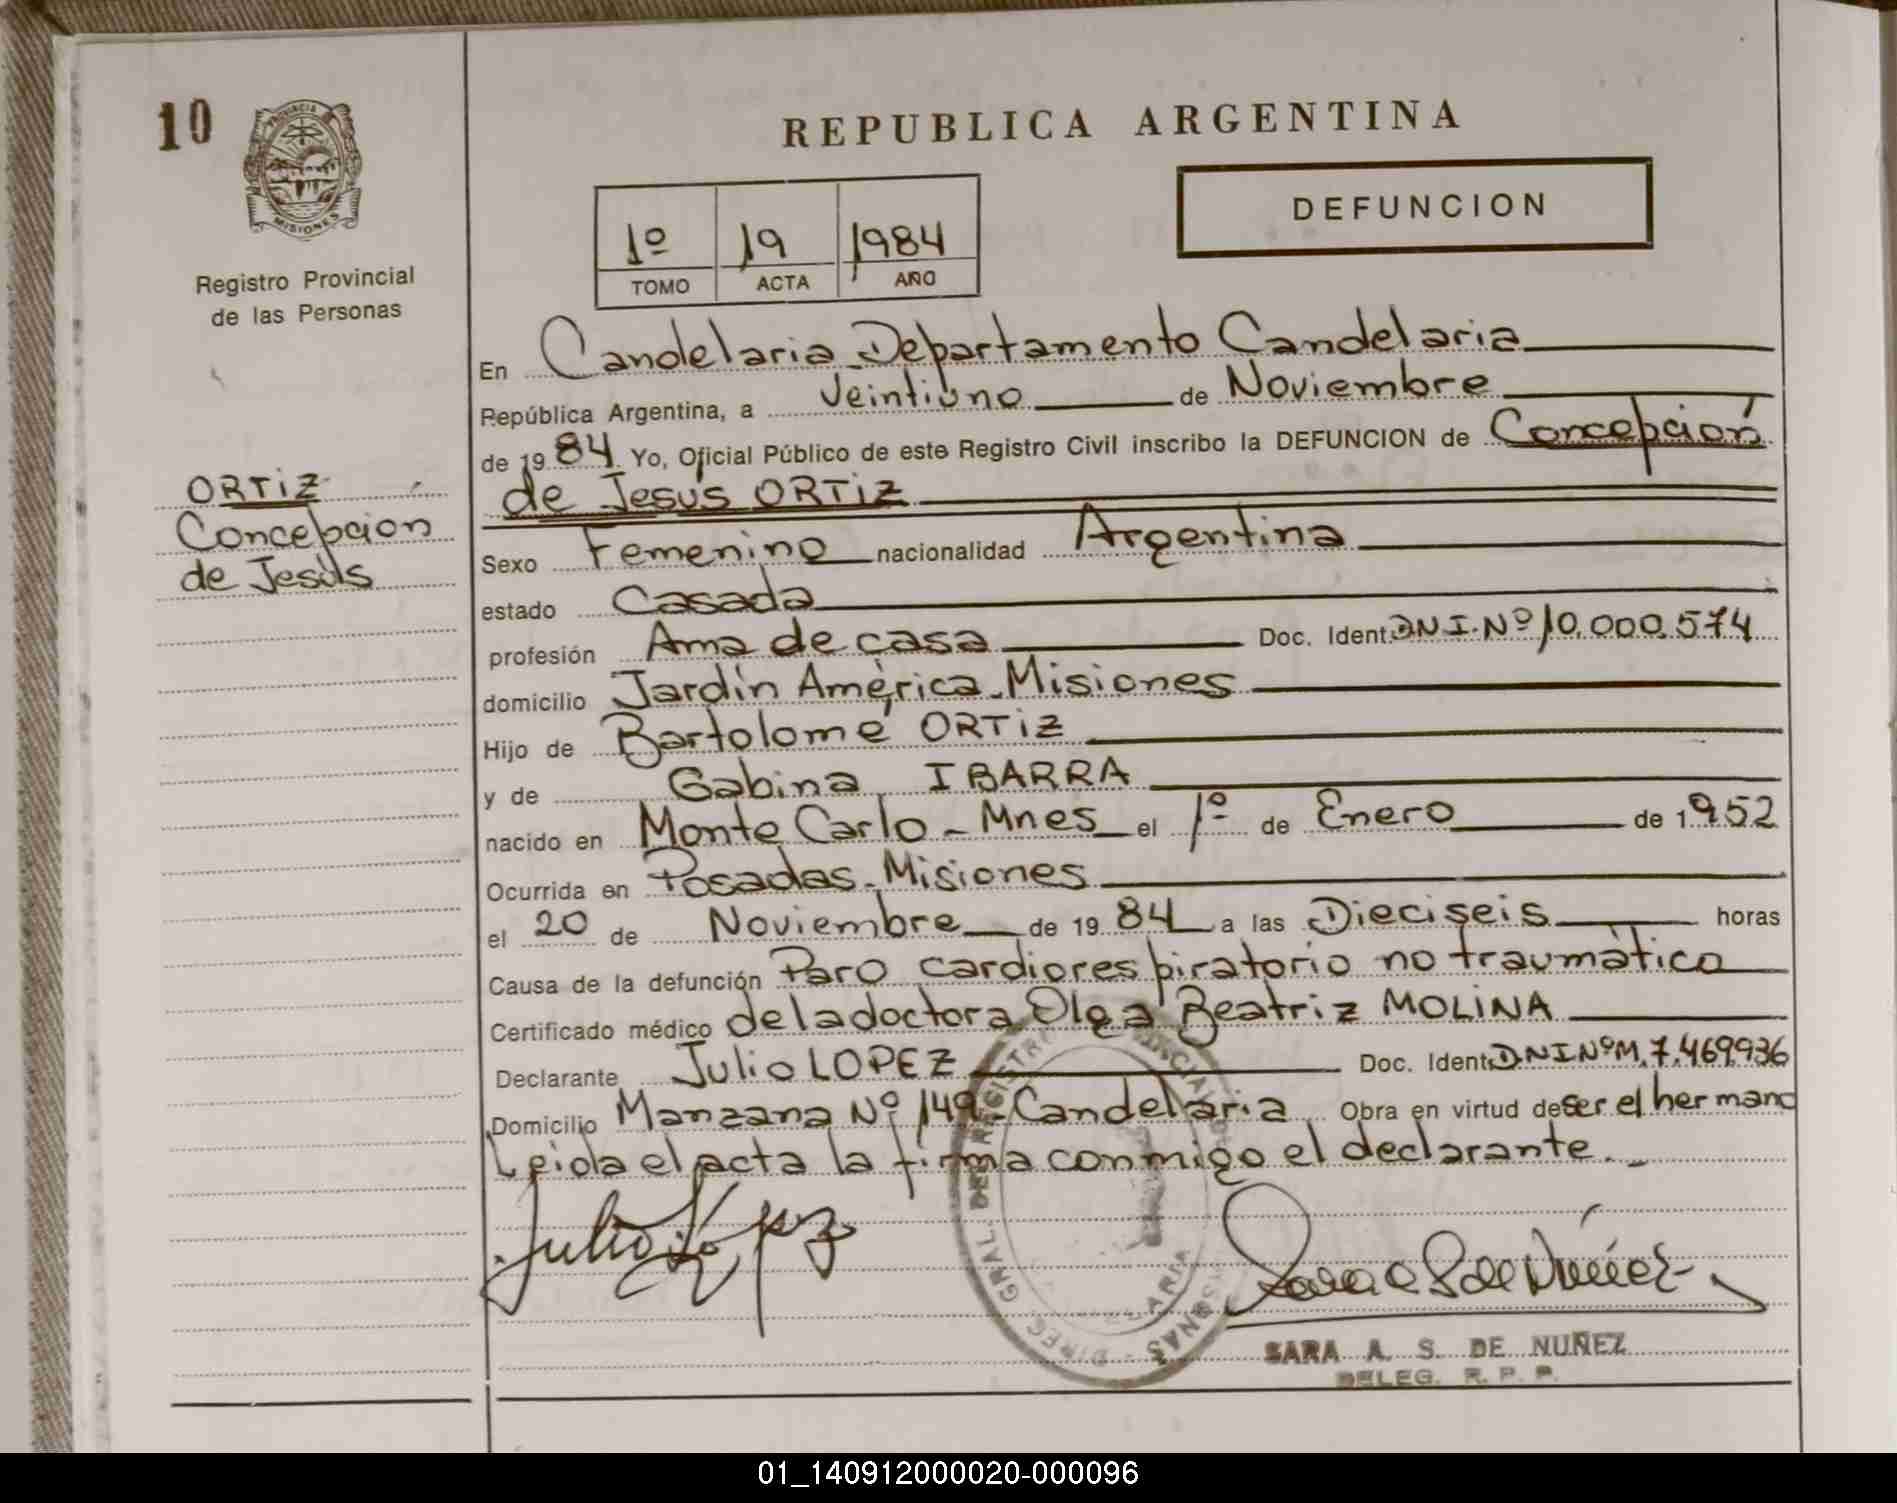 10
PROVINCIA
MISIONES
Registro Provincial
de las Personas
ORTIZ
Concepcion
de Jesús
REPUBLICA ARGENTINA
DEFUNCION
1º 19 1984
TOMO ACTA AÑO
En Candelaria Departamento Candelaria
República Argentina, a Veintiuno de Noviembre
de 1984 Yo, Oficial Público de este Registro Civil inscribo la DEFUNCION de Concepción
de Jesús ORTIZ
Sexo Femenino nacionalidad Argentina
estado Casada
profesión Ama de casa Doc. Ident. DNI. Nº 10.000.574
domicilio Jardín América - Misiones
Hijo de Bartolomé ORTIZ
y de Gabina IBARRA
nacido en Monte Carlo - Mnes el 1º de Enero de 1952
Ocurrida en Posadas - Misiones
el 20 de Noviembre de 1984 a las Dieciseis horas
Causa de la defunción Paro cardiorespiratorio no traumático
Certificado médico de la doctora Olga Beatriz MOLINA
Declarante Julio LOPEZ Doc. Ident. DNI Nº M. 7.469936
Domicilio Manzana Nº 149 - Candelaria Obra en virtud de ser el hermano
Leida el acta la firma conmigo el declarante. -
Julio López
SARA A. S. DE NUÑEZ
DELEG. R. P. P.
01_140912000020-000096